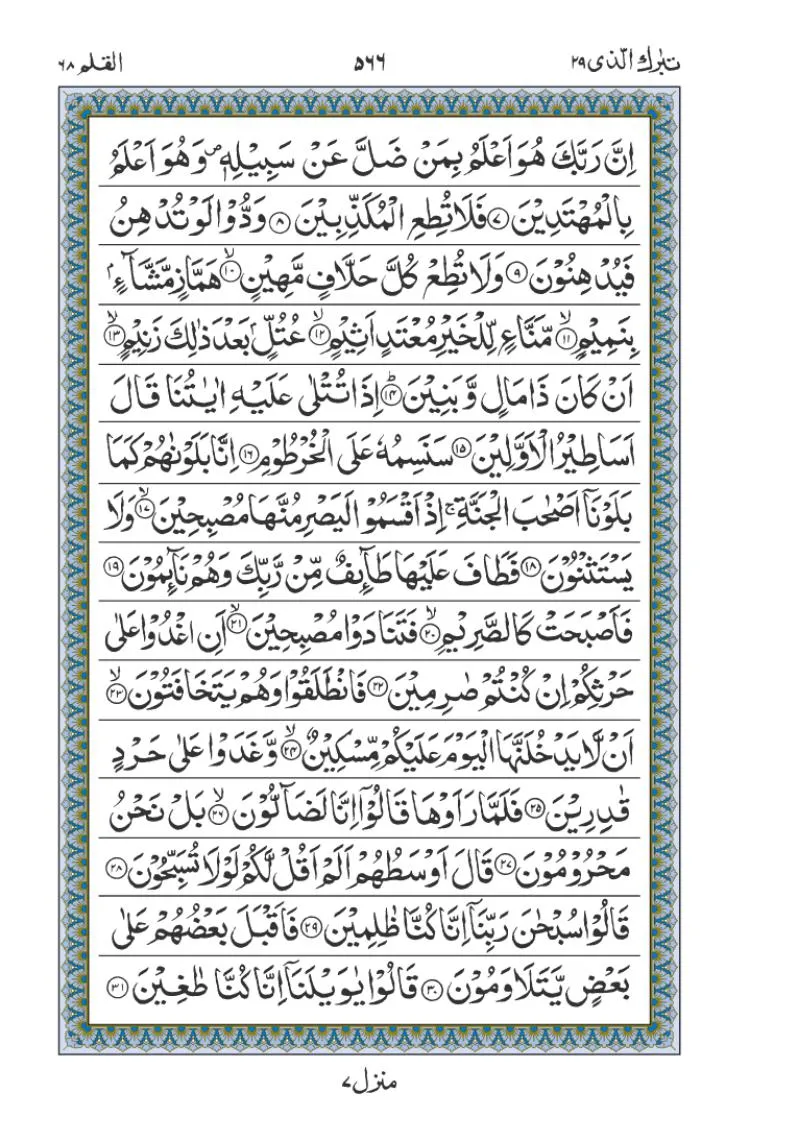 تبٰرك الّذى ٢٩
٥٦٦
القلم ٦٨
اِنَّ رَبَّكَ هُوَ اَعْلَمُ بِمَنْ ضَلَّ عَنْ سَبِيْلِهٖ ص وَهُوَ اَعْلَمُ
بِالْمُهْتَدِيْنَ ٧ فَلَا تُطِعِ الْمُكَذِّبِيْنَ ٨ وَدُّوْا لَوْ تُدْهِنُ
فَيُدْهِنُوْنَ ٩ وَلَا تُطِعْ كُلَّ حَلَّافٍ مَّهِيْنٍ ۙ ١٠ هَمَّازٍ مَّشَّآءٍۭ
بِنَمِيْمٍ ۙ ١١ مَّنَّاعٍ لِّلْخَيْرِ مُعْتَدٍ اَثِيْمٍ ۙ ١٢ عُتُلٍّۭ بَعْدَ ذٰلِكَ زَنِيْمٍ ۙ ١٣
اَنْ كَانَ ذَا مَالٍ وَّبَنِيْنَ ؕ ١٤ اِذَا تُتْلٰى عَلَيْهِ اٰيٰتُنَا قَالَ
اَسَاطِيْرُ الْاَوَّلِيْنَ ١٥ سَنَسِمُهٗ عَلَى الْخُرْطُوْمِ ١٦ اِنَّا بَلَوْنٰهُمْ كَمَا
بَلَوْنَآ اَصْحٰبَ الْجَنَّةِ ۚ اِذْ اَقْسَمُوْا لَيَصْرِمُنَّهَا مُصْبِحِيْنَ ۙ ١٧ وَلَا
يَسْتَثْنُوْنَ ١٨ فَطَافَ عَلَيْهَا طَآئِفٌ مِّنْ رَّبِّكَ وَهُمْ نَآئِمُوْنَ ١٩
فَاَصْبَحَتْ كَالصَّرِيْمِ ۙ ٢٠ فَتَنَادَوْا مُصْبِحِيْنَ ۙ ٢١ اَنِ اغْدُوْا عَلٰى
حَرْثِكُمْ اِنْ كُنْتُمْ صٰرِمِيْنَ ٢٢ فَانْطَلَقُوْا وَهُمْ يَتَخَافَتُوْنَ ۙ ٢٣
اَنْ لَّا يَدْخُلَنَّهَا الْيَوْمَ عَلَيْكُمْ مِّسْكِيْنٌ ۙ ٢٤ وَّغَدَوْا عَلٰى حَرْدٍ
قٰدِرِيْنَ ٢٥ فَلَمَّا رَاَوْهَا قَالُوْٓا اِنَّا لَضَآلُّوْنَ ۙ ٢٦ بَلْ نَحْنُ
مَحْرُوْمُوْنَ ٢٧ قَالَ اَوْسَطُهُمْ اَلَمْ اَقُلْ لَّكُمْ لَوْلَا تُسَبِّحُوْنَ ٢٨
قَالُوْا سُبْحٰنَ رَبِّنَآ اِنَّا كُنَّا ظٰلِمِيْنَ ٢٩ فَاَقْبَلَ بَعْضُهُمْ عَلٰى
بَعْضٍ يَّتَلَاوَمُوْنَ ٣٠ قَالُوْا يٰوَيْلَنَآ اِنَّا كُنَّا طٰغِيْنَ ٣١
منزل ٧